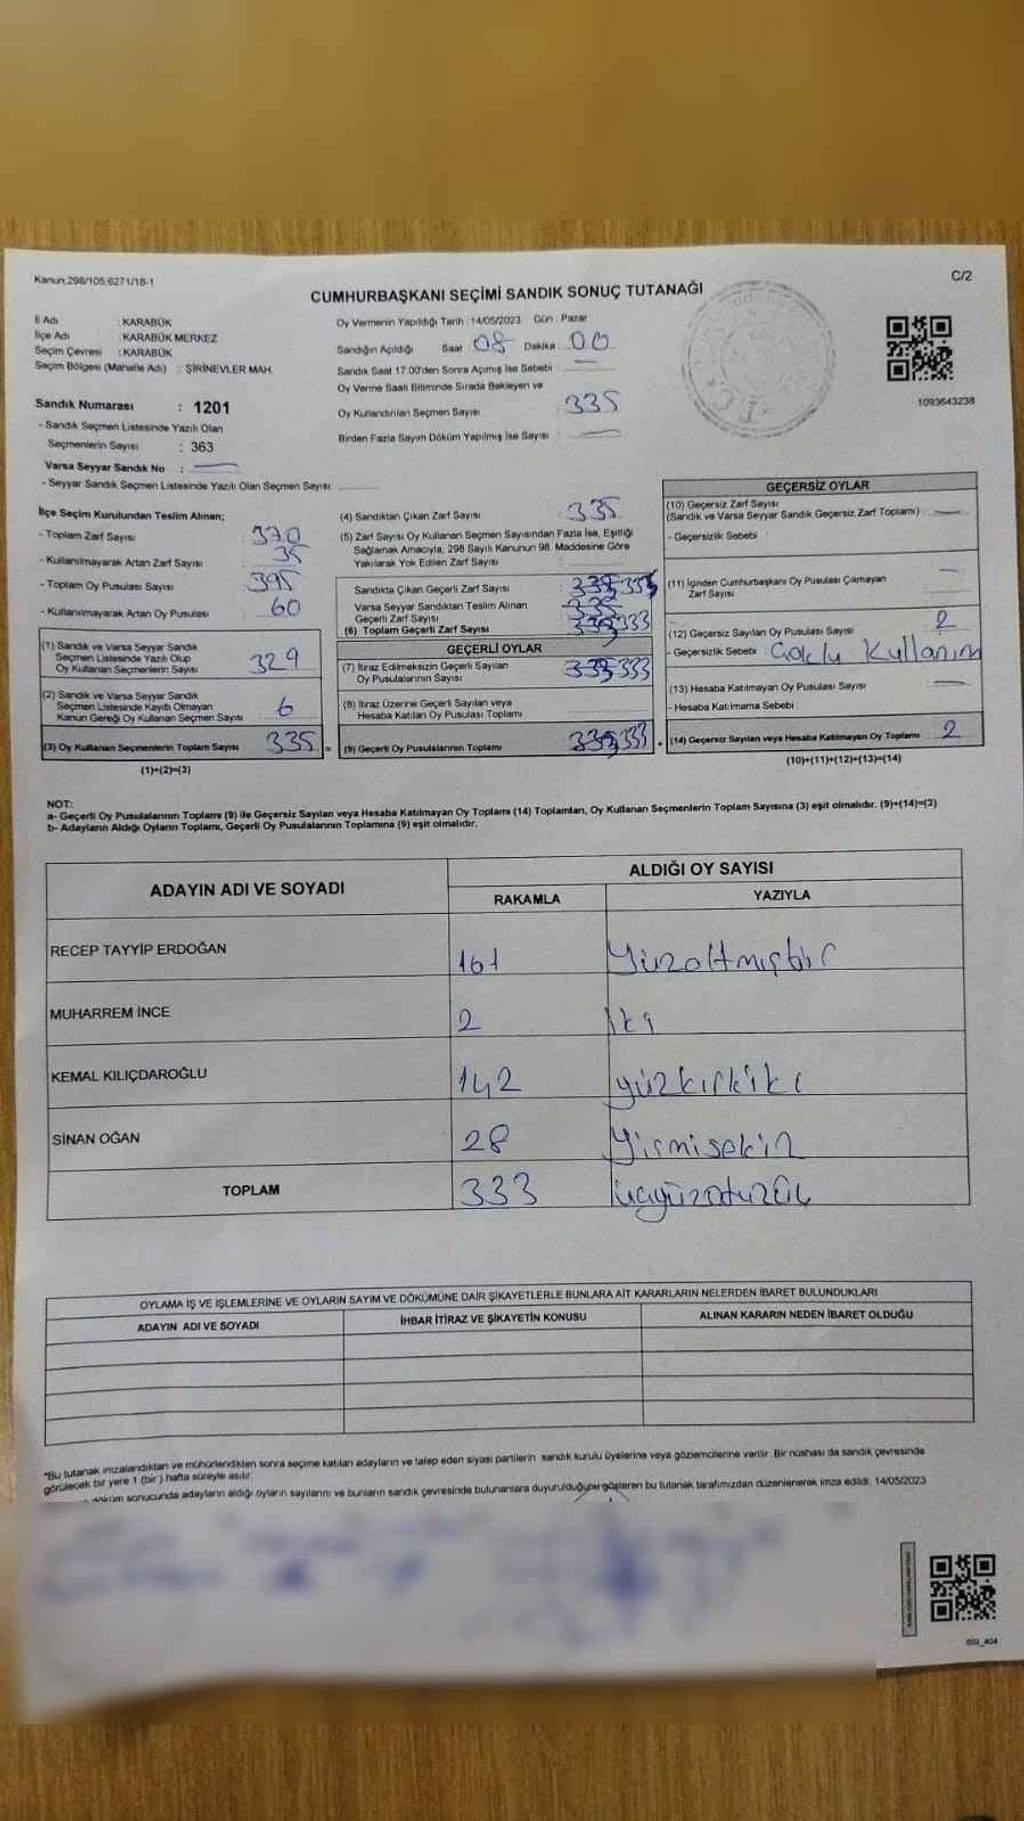 Kanun:298/105,6271/18-1
C/2
CUMHURBAŞKANI SEÇİMİ SANDIK SONUÇ TUTANAĞI
İl Adı : KARABÜK
İlçe Adı : KARABÜK MERKEZ
Seçim Çevresi : KARABÜK
Seçim Bölgesi (Mahalle Adı) : ŞİRİNEVLER MAH.
Sandık Numarası : 1201
- Sandık Seçmen Listesinde Yazılı Olan
Seçmenlerin Sayısı : 363
Varsa Seyyar Sandık No :
- Seyyar Sandık Seçmen Listesinde Yazılı Olan Seçmen Sayısı:
Oy Vermenin Yapıldığı Tarih : 14/05/2023 Gün : Pazar
Sandığın Açıldığı Saat 08 Dakika 00
Sandık Saat 17:00'den Sonra Açılmış İse Sebebi :
Oy Verme Saati Bitiminde Sırada Bekleyen ve
Oy Kullandırılan Seçmen Sayısı : 335
Birden Fazla Sayım Döküm Yapılmış İse Sayısı :
1093643238
İlçe Seçim Kurulundan Teslim Alınan;
- Toplam Zarf Sayısı : 370
- Kullanılmayarak Artan Zarf Sayısı : 35
- Toplam Oy Pusulası Sayısı : 395
- Kullanılmayarak Artan Oy Pusulası : 60
(1) Sandık ve Varsa Seyyar Sandık
Seçmen Listesinde Yazılı Olup
Oy Kullanan Seçmenlerin Sayısı : 329
(2) Sandık ve Varsa Seyyar Sandık
Seçmen Listesinde Kayıtlı Olmayan
Kanun Gereği Oy Kullanan Seçmen Sayısı : 6
(3) Oy Kullanan Seçmenlerin Toplam Sayısı 335 =
(1)+(2)=(3)
(4) Sandıktan Çıkan Zarf Sayısı : 335
(5) Zarf Sayısı Oy Kullanan Seçmen Sayısından Fazla İse, Eşitliği
Sağlamak Amacıyla, 298 Sayılı Kanunun 98. Maddesine Göre
Yakılarak Yok Edilen Zarf Sayısı :
Sandıkta Çıkan Geçerli Zarf Sayısı :
Varsa Seyyar Sandıktan Teslim Alınan
Geçerli Zarf Sayısı :
(6) Toplam Geçerli Zarf Sayısı : 333
GEÇERLİ OYLAR
(7) İtiraz Edilmeksizin Geçerli Sayılan
Oy Pusulalarının Sayısı : 333
(8) İtiraz Üzerine Geçerli Sayılan veya
Hesaba Katılan Oy Pusulası Toplamı
(9) Geçerli Oy Pusulalarının Toplamı 333 +
GEÇERSİZ OYLAR
(10) Geçersiz Zarf Sayısı
(Sandık ve Varsa Seyyar Sandık Geçersiz Zarf Toplamı) :
- Geçersizlik Sebebi :
(11) İçinden Cumhurbaşkanı Oy Pusulası Çıkmayan
Zarf Sayısı
(12) Geçersiz Sayılan Oy Pusulası Sayısı 2
- Geçersizlik Sebebi : Çoklu Kullanım
(13) Hesaba Katılmayan Oy Pusulası Sayısı
- Hesaba Katılmama Sebebi :
(14) Geçersiz Sayılan veya Hesaba Katılmayan Oy Toplamı 2
(10)+(11)+(12)+(13)=(14)
NOT:
a- Geçerli Oy Pusulalarının Toplamı (9) ile Geçersiz Sayılan veya Hesaba Katılmayan Oy Toplamı (14) Toplamları, Oy Kullanan Seçmenlerin Toplam Sayısına (3) eşit olmalıdır. (9)+(14)=(3)
b- Adayların Aldığı Oyların Toplamı, Geçerli Oy Pusulalarının Toplamına (9) eşit olmalıdır.
ADAYIN ADI VE SOYADI
ALDIĞI OY SAYISI
RAKAMLA YAZIYLA
RECEP TAYYİP ERDOĞAN 161 Yüzaltmışbir
MUHARREM İNCE 2 İki
KEMAL KILIÇDAROĞLU 142 yüzkırkiki
SİNAN OĞAN 28 Yirmisekiz
TOPLAM 333 üçyüzotuzüç
OYLAMA İŞ VE İŞLEMLERİNE VE OYLARIN SAYIM VE DÖKÜMÜNE DAİR ŞİKAYETLERLE BUNLARA AİT KARARLARIN NELERDEN İBARET BULUNDUKLARI
ADAYIN ADI VE SOYADI İHBAR İTİRAZ VE ŞİKAYETİN KONUSU ALINAN KARARIN NEDEN İBARET OLDUĞU
"Bu tutanak imzalandıktan ve mühürlendikten sonra seçime katılan adayların ve talep eden siyasi partilerin sandık kurulu üyelerine veya gözlemcilerine verilir. Bir nüshası da sandık çevresinde
görülecek bir yere 1 (bir) hafta süreyle asılır.
döküm sonucunda adayların aldığı oyların sayılarını ve bunların sandık çevresinde bulunanlara duyurulduğunu gösteren bu tutanak tarafımızdan düzenlenerek imza edildi. 14/05/2023